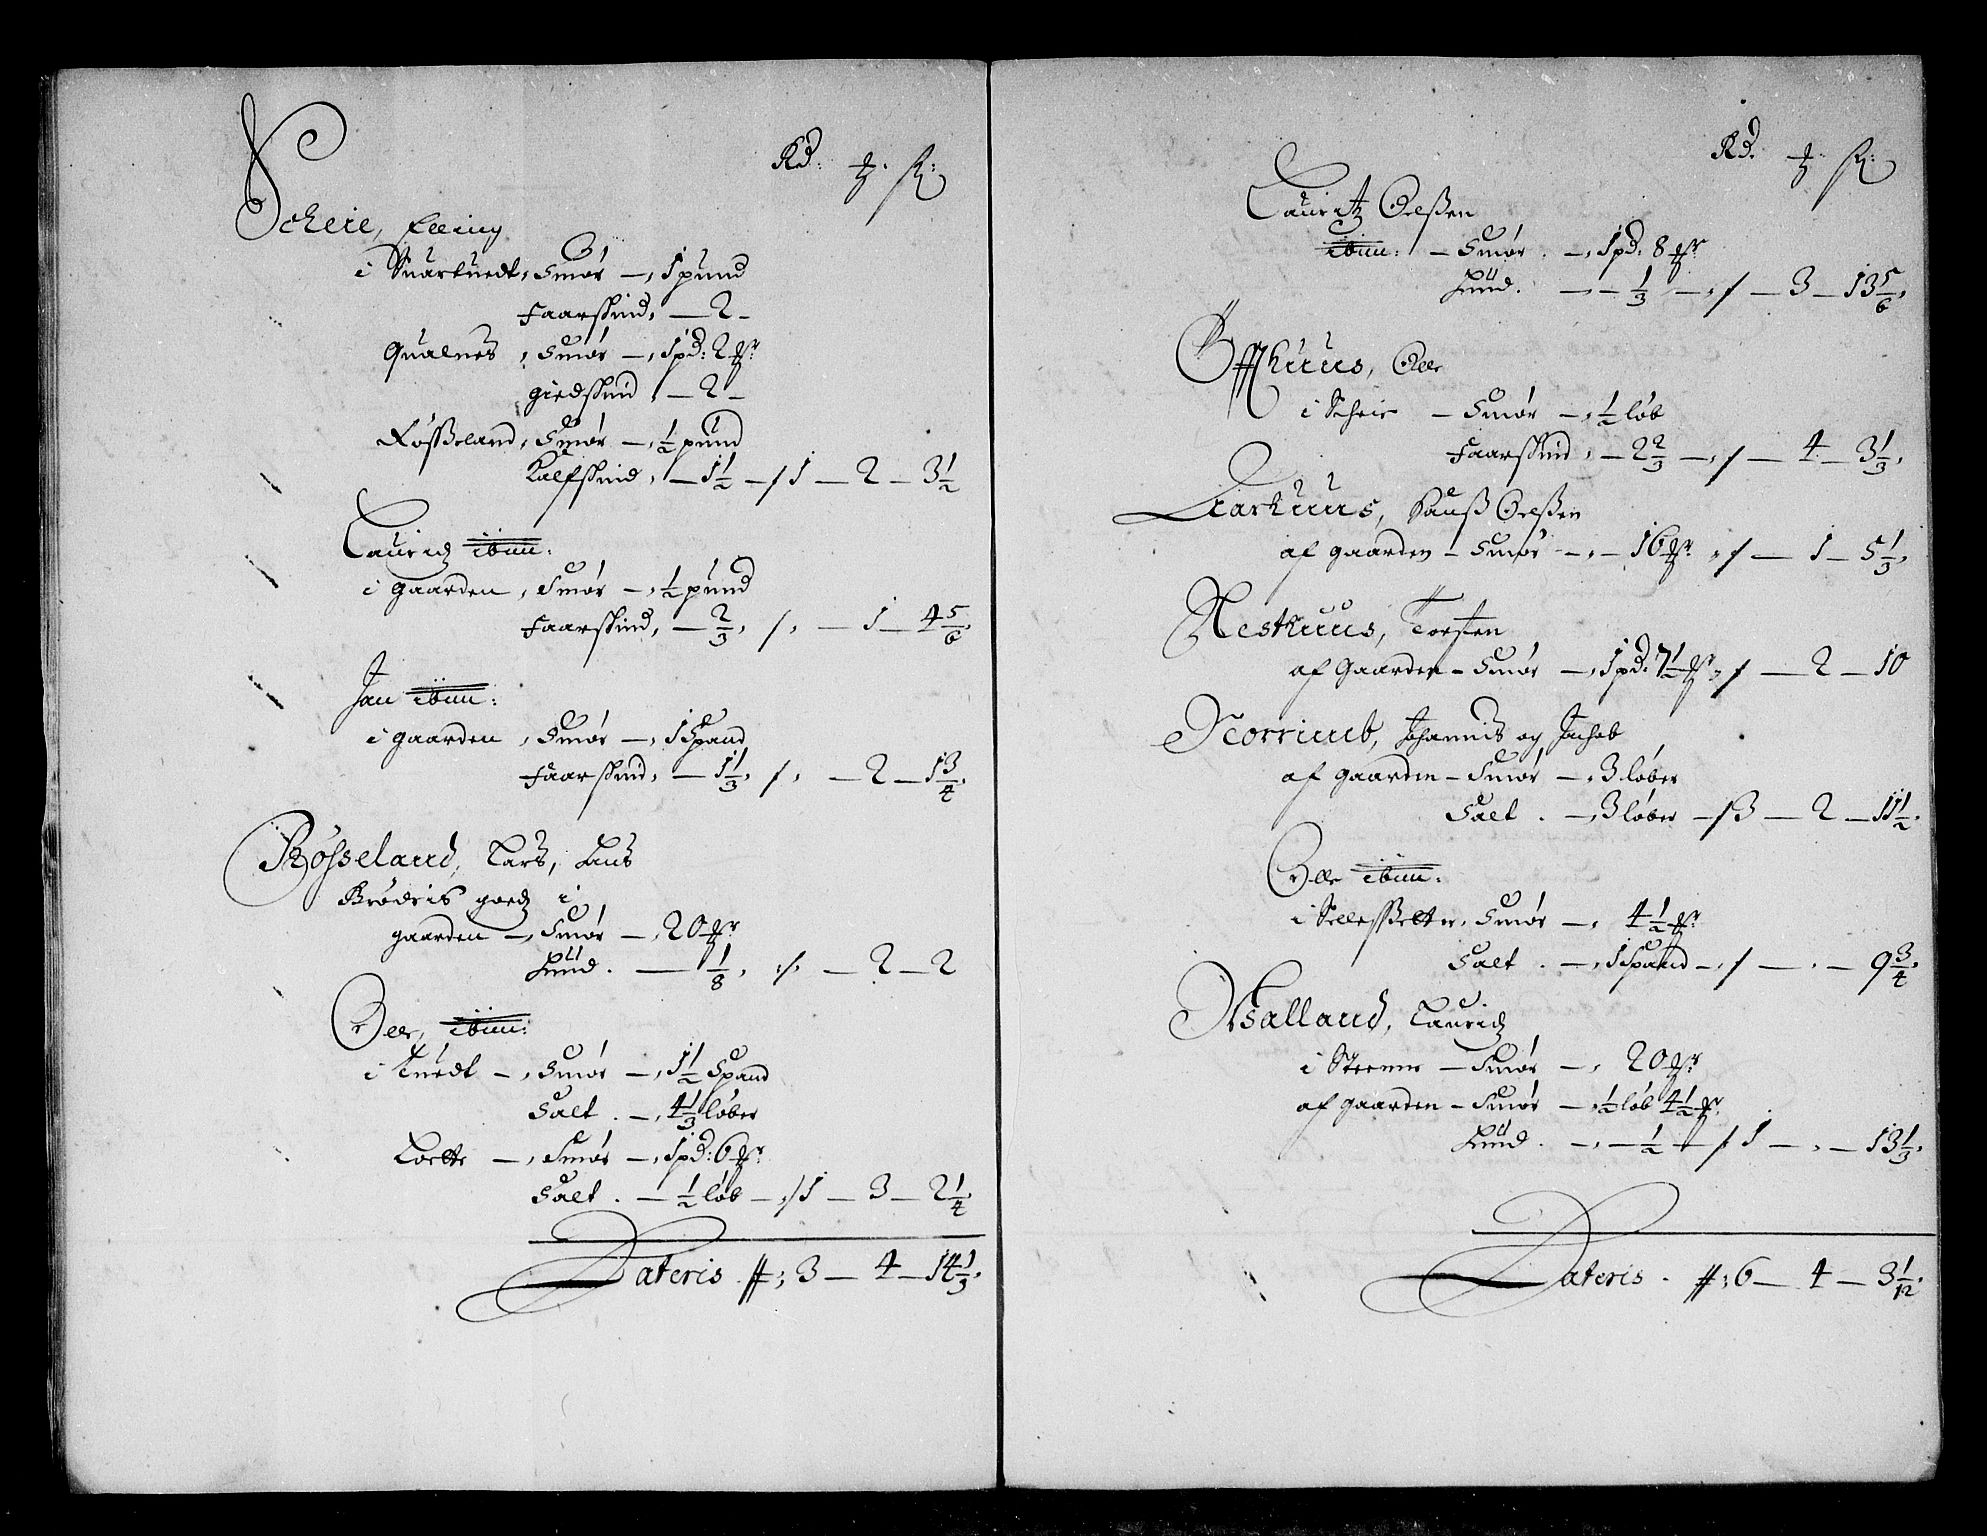 Rd. ʒ. ß:
Scheie, Elling
i Suartuedt, Smør —, 1 pund
Faarskind, — 2 –
Qualnes, Smør —, 1 pd: 2 ℔r
giedskind, — 2 –
Røsseland, Smør —, ½ pund
Kalfskind, — 1½ —/ 1 — 2 — 3½
Lauridz ibim:
i gaarden, Smør —, ½ pund
Faarskind, — 2/3, /, — 1 — 4 5/6,
Jan ibim:
i gaarden, Smør —, 1 Spand
Faarskind, — 1 1/3, /, — 2 — 1 3/4,
Røsseland, Lars, hans
Brødris goedz i
gaarden —, Smør —, 20 ℔r
Huud. — 1/8, /, — 2 — 2
Olle, ibim:
i Tuedt —, Smør —, 1½ Spand
Salt. —, 4 1/3 løber
Toette —, Smør —, 1 pd: 6 ℔r
Salt. — ½ løb —,/ 1 — 3 — 2 1/4,
Lateris #: 3 — 4 — 14 1/3,
Rd. ʒ. ß:
Lauritz Olßen
ibim: — Smør. —, 1 pd: 8 ℔r
Huud. — — 1/3 —, / — 3 — 13 5/6,
Offhuus, Olle
i Scheie — Smør —, ½ løb
Faarskind, — 2 2/3 —, / — 4 — 3 1/3,
Aarhuus, Hanß Olßen
af gaarden — Smør —, — 16 ℔r, / — 1 — 5 1/3,
Nesthuus, Torsten
af Gaarden — Smør —, 1 pd: 7½ ℔r, / — 2 — 10
Norrimb, Johannis og Jachob
af gaarden — Smør —, 3 løber
Salt. —, 3 løber —/ 3 — 2 — 11½,
Olle ibim:
i Smør —, 4½ ℔r
Salt. —, 1 Spand —, / — , — 9 3/4,
Malland, Lauridz
i Steenne — Smør —, 20 ℔r
af gaarden — Smør —, ½ løb 4½ ℔r
Huud. —, — ½ —/ 1 — , — 13 1/3,
Lateris. #: 6 — 4 — 3 1/12,